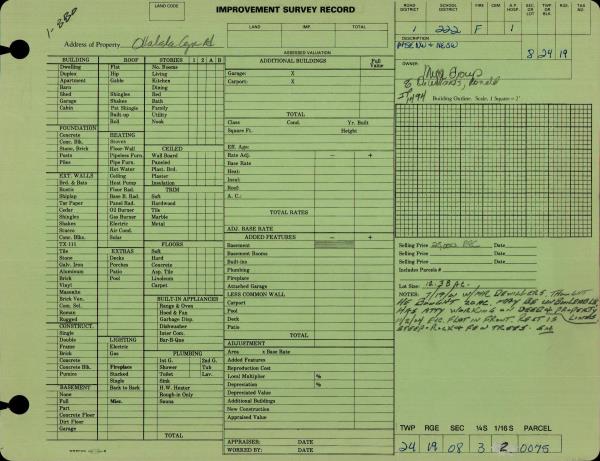 LAND CODE
IMPROVEMENT SURVEY RECORD
1-880
LAND IMP. TOTAL
Address of Property
ROAD DISTRICT SCHOOL DISTRICT FIRE CEM. A.P. HOSP. SEC. OR LOT TWP. OR BLK. RGE. TAX NO.
1 222 F 1 8 24 19
DESCRIPTION
OWNER:
Building Outline. Scale, 1 Square = 2'
ASSESSED VALUATION
BUILDING ROOF STORIES 1 2 A B
Dwelling Flat No. Rooms
Duplex Hip Living
Apartment Gable Kitchen
Barn Dining
Shed Shingles Bed
Garage Shakes Bath
Cabin Pat Shingle Family
Built-up Utility
Roll Nook
FOUNDATION
Concrete HEATING
Conc. Blk. Stoves CEILED
Stone, Brick Floor-Wall Wall Board
Posts Pipeless Furn. Paneled
Piles Pipe Furn. Plast. Brd.
Hot Water Plaster
EXT. WALLS Ceiling Insulation
Brd. & Bats Heat Pump TRIM
Rustic Floor Rad. Soft
Shiplap Base B. Rad. Hardwood
Tar Paper Panel Rad. Tile
Cedar Oil Burner Marble
Shingles Gas Burner Metal
Shakes Electric
Stucco Air Cond.
Conc. Blks. Solar
TX-111 FLOORS
Tile EXTRAS Soft
Stone Decks Hard
Galv. Iron Porches Concrete
Aluminum Patio Asp. Tile
Brick Pool Linoleum
Vinyl Carpet
Masonite
Brick Van. BUILT-IN APPLIANCES
Com. Sel. Range & Oven
Roman Hood & Fan
Rugged Garbage Disp.
CONSTRUCT. Dishwasher
Single Inter Com.
Double LIGHTING Bar-B-Que
Frame Electric
Brick Gas PLUMBING
Concrete 1st G. 2nd G.
Concrete Blk. Fireplace Shower Tub
Pumice Stacked Toilet Lav.
Single Sink
BASEMENT Back to Back H.W. Heater
None Rough-in Only
Full Misc. Sauna
Part
Concrete Floor
Dirt Floor
Garage
TOTAL
ADDITIONAL BUILDINGS Full Value
Garage: X
Carport: X
TOTAL
Class Cond. Yr. Built
Square Ft. Height
Eff. Age:
Rate Adj. − +
Base Rate
Heat:
Insul:
Roof:
A. C.:
TOTAL RATES
ADJ. BASE RATE
ADDED FEATURES − +
Basement
Basement Rooms
Built-ins
Plumbing
Fireplace
Attached Garage
LESS COMMON WALL
Carport
Pool
Deck
Patio
TOTAL
ADJUSTMENT
Area x Base Rate
Added Features
Reproduction Cost
Local Multiplier %
Depreciation %
Depreciated Value
Additional Buildings
New Construction
Appraised Value
APPRAISER: DATE
WORKED BY: DATE
Selling Price Date
Selling Price Date
Selling Price Date
Includes Parcels #
Lot Size: 12.38 AC.
NOTES:
TWP RGE SEC ¼S 1/16 S PARCEL
24 19 08 3 2 0075